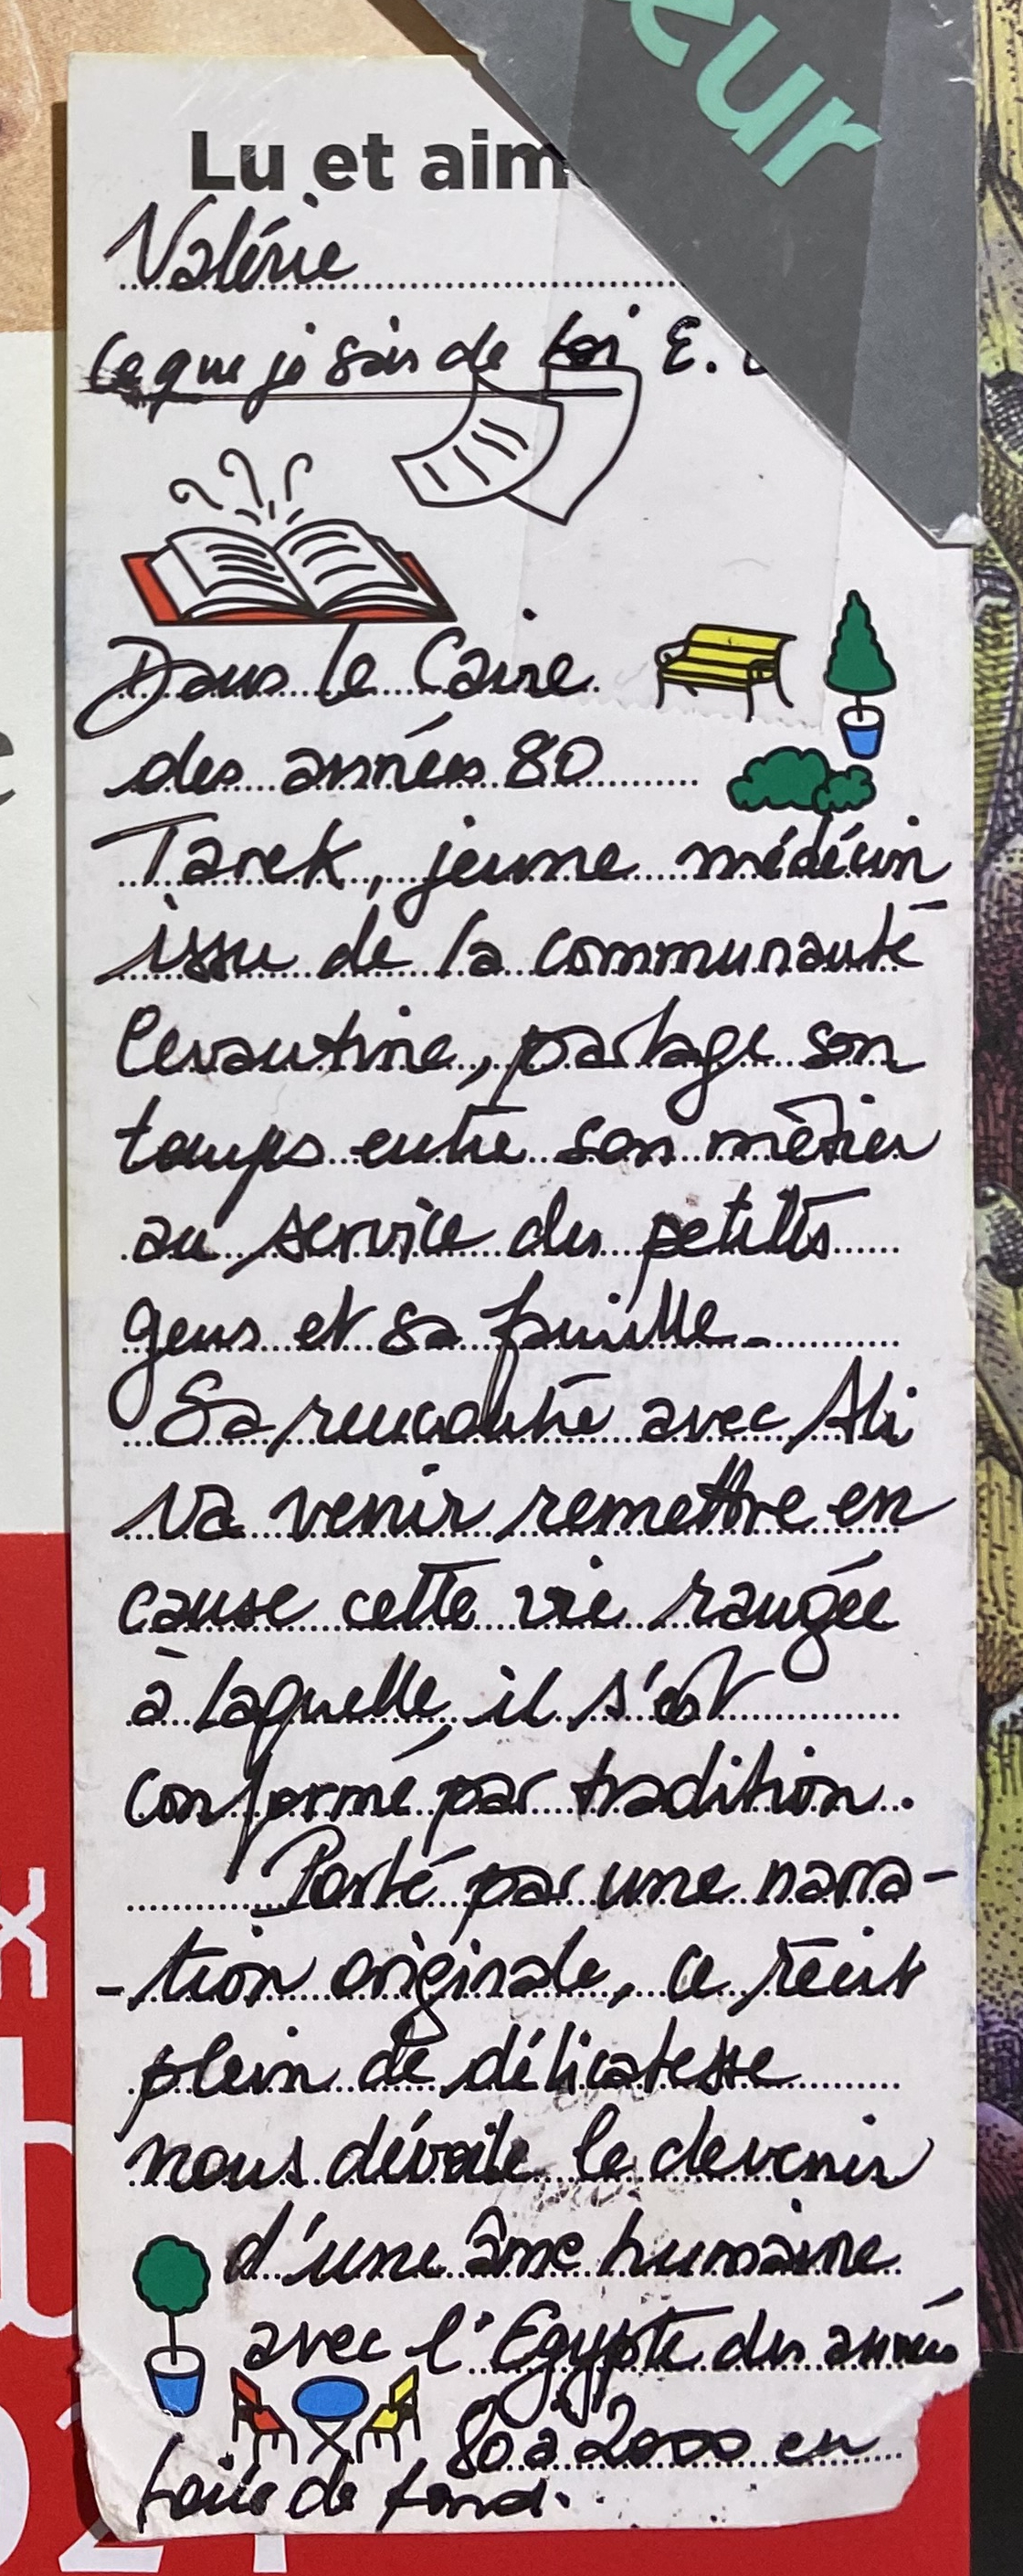 eur
Lu et aim
Valérie
Ce que je sais de toi E.
Dans le Caire
des années 80
Tarek, jeune médécin
issu de la communauté
levantine, partage son
temps entre son métier
au service des petites
gens et sa famille.
Sa rencontre avec Ali
va venir remettre en
cause cette vie rangée
à laquelle il s'est
conformé par tradition.
Porté par une narra-
-tion originale, ce récit
plein de délicatesse
nous dévoile le devenir
d'une âme humaine
avec l'Egypte des années
80 à 2000 en
toile de fond.